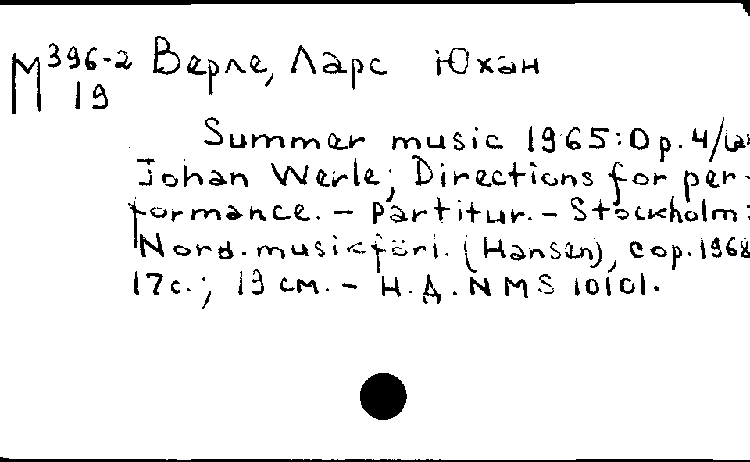 М 396-2 Верле, Ларс Юхан
19
Summer music 1965: Op. 4/
Johan Werle; Directions for per-
formance. - Partitur. - Stockholm:
Nord. musikförl. (Hansen), cop. 1968
17 с.; 19 см. - Н.Д. NMS 10101.